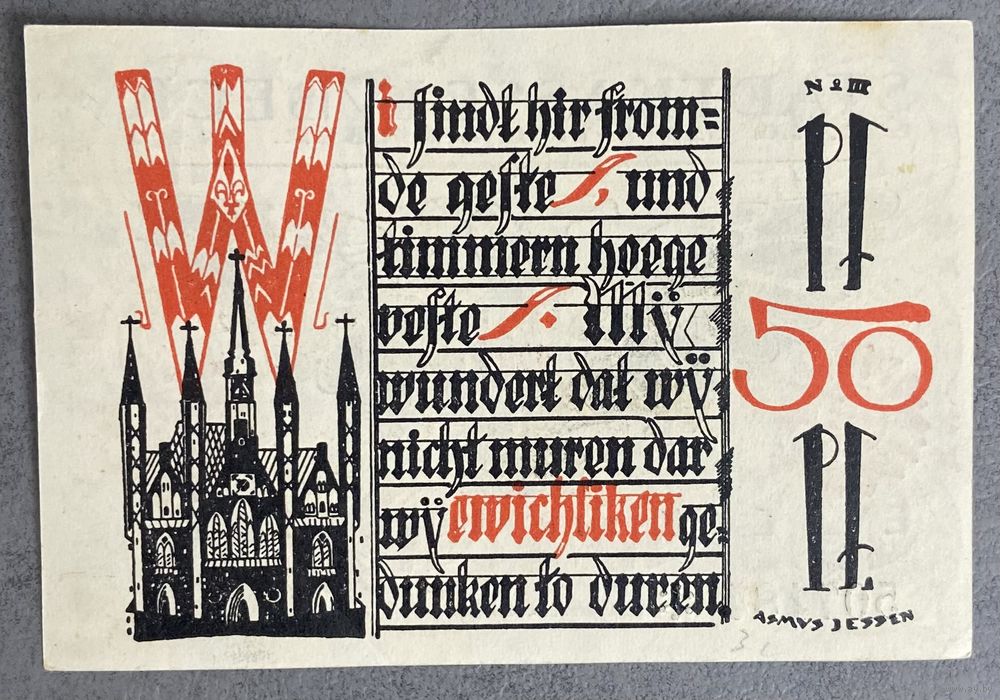 Wi sindt hir from=
de geste /. und
timmern hoege
veste /. My̋
wundert dat wÿ
nicht muren dar
wÿ ewichliken ge=
dunken to duren
No III
Pf
50
Pf
ASMVS JESSEN
www.ay.by